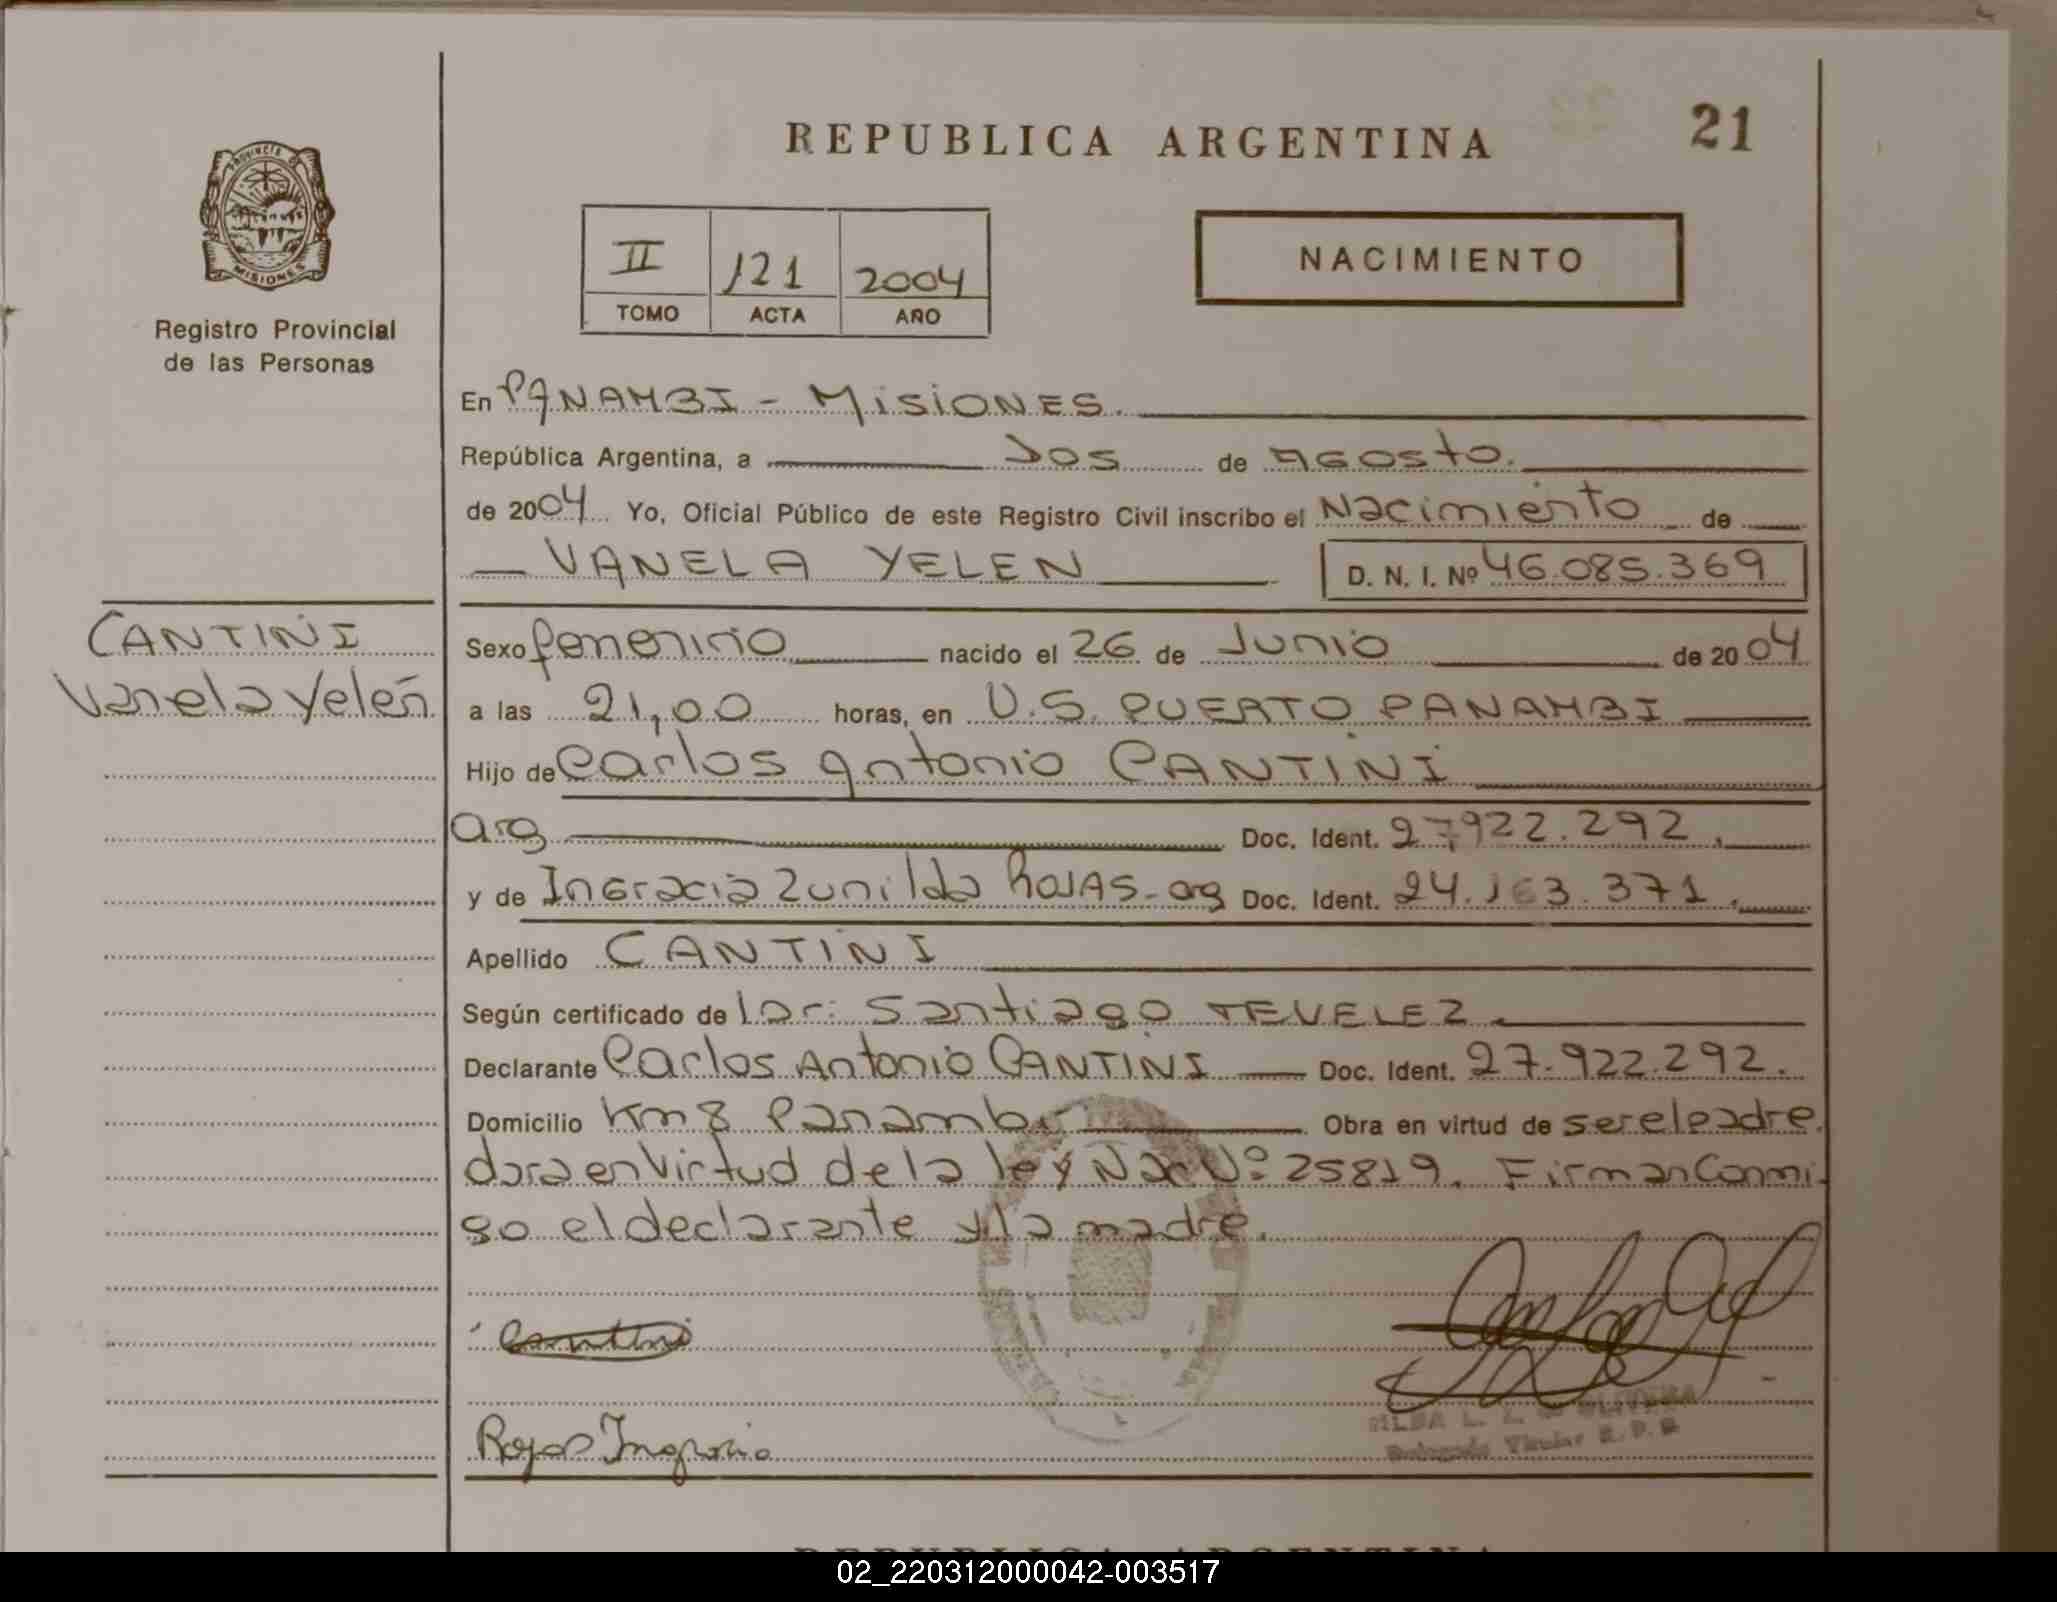 REPUBLICA ARGENTINA
21
PROVINCIA DE
MISIONES
Registro Provincial
de las Personas
II 121 2004
TOMO ACTA AÑO
NACIMIENTO
En PANAMBI - MISIONES.
República Argentina, a DOS de AGOSTO.
de 2004 Yo, Oficial Público de este Registro Civil inscribo el Nacimiento de
VANELA YELEN D. N. I. Nº 46.085.369
CANTINI
Vanela Yelen
Sexo femenino nacido el 26 de Junio de 2004
a las 21,00 horas, en U.S. PUERTO PANAMBI
Hijo de Carlos Antonio CANTINI
arg Doc. Ident. 27922.292.
y de Ingracia Zunilda ROJAS - arg Doc. Ident. 24.163.371.
Apellido CANTINI
Según certificado de Santiago TEVELEZ
Declarante Carlos Antonio CANTINI Doc. Ident. 27.922.292.
Domicilio Km 8 Panambi Obra en virtud de ser el padre.
en Virtud de la ley Nac Nº 25819. Firman Conmi-
go el declarante y la madre.
Cantini
Rojas Ingracia
L. L. de OLIVEIRA
Delegado Titular R. P. P.
REPUBLICA ARGENTINA
02_220312000042-003517